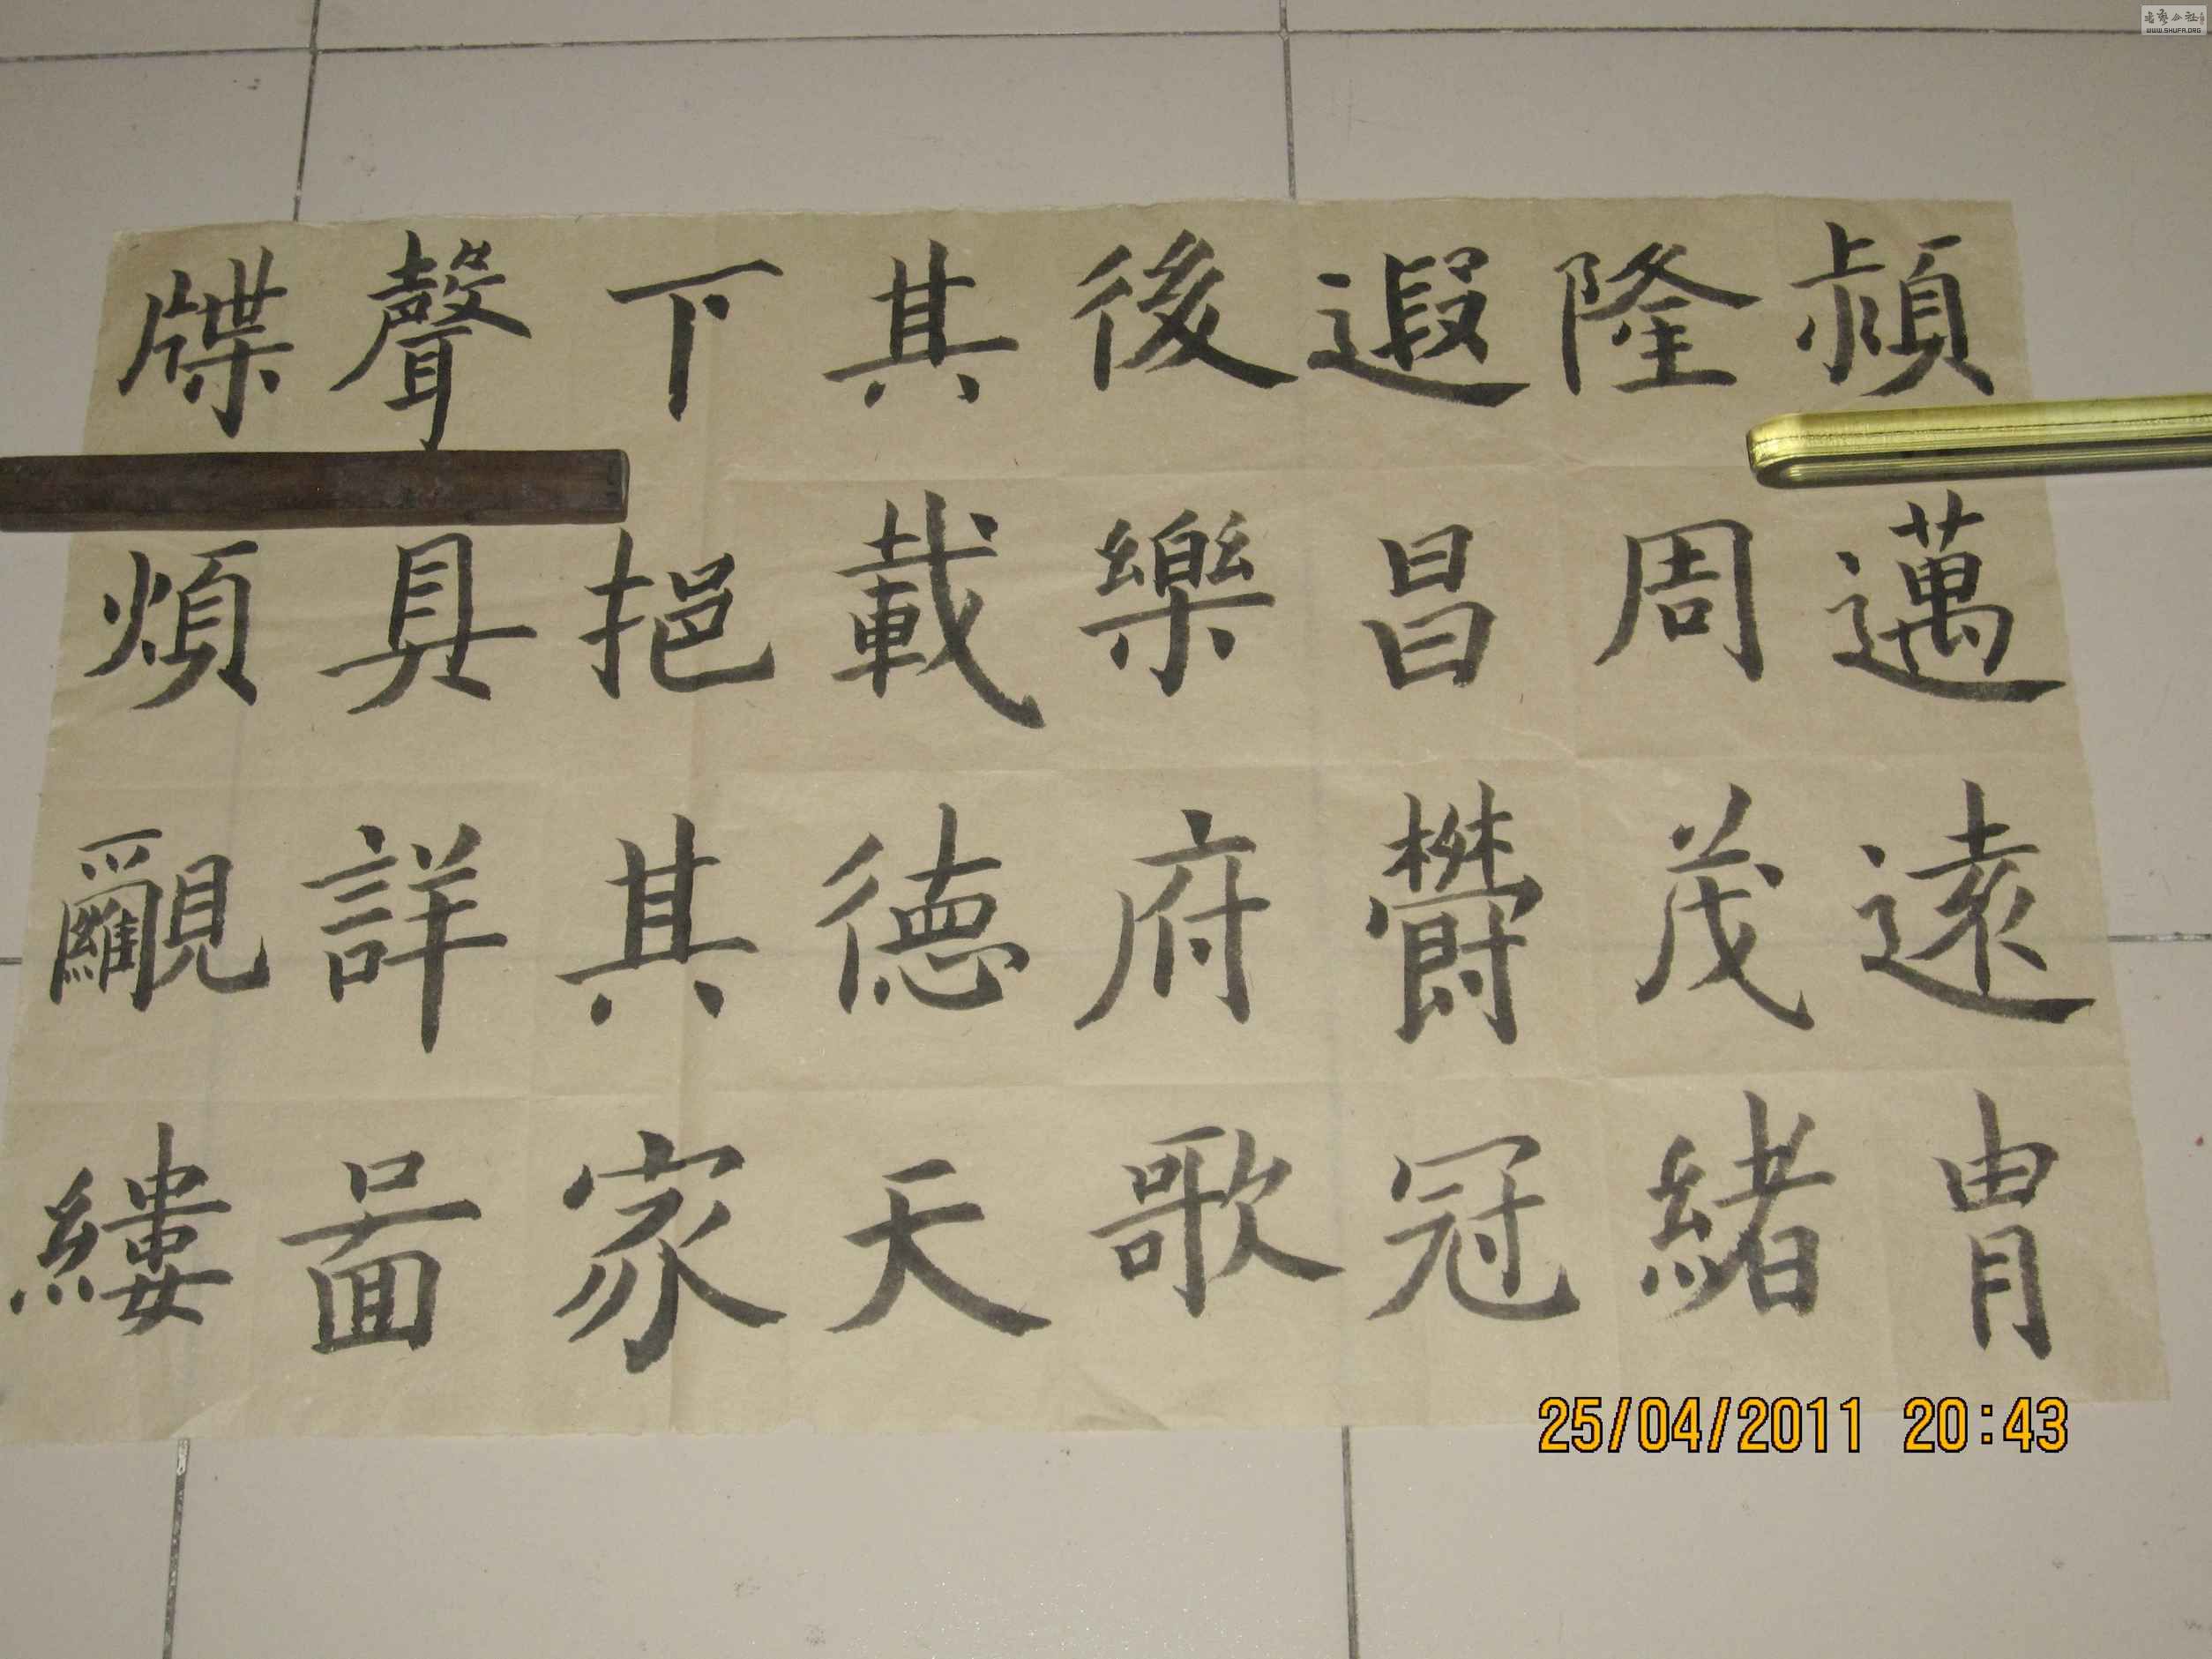 颕邁遠胄
隆周茂緒
遐昌欝冠
後樂府歌
其載德天
下挹其家
聲具詳啚
牒煩覼縷
25/04/2011 20:43
书艺公社
WWW.SHUFA.ORG